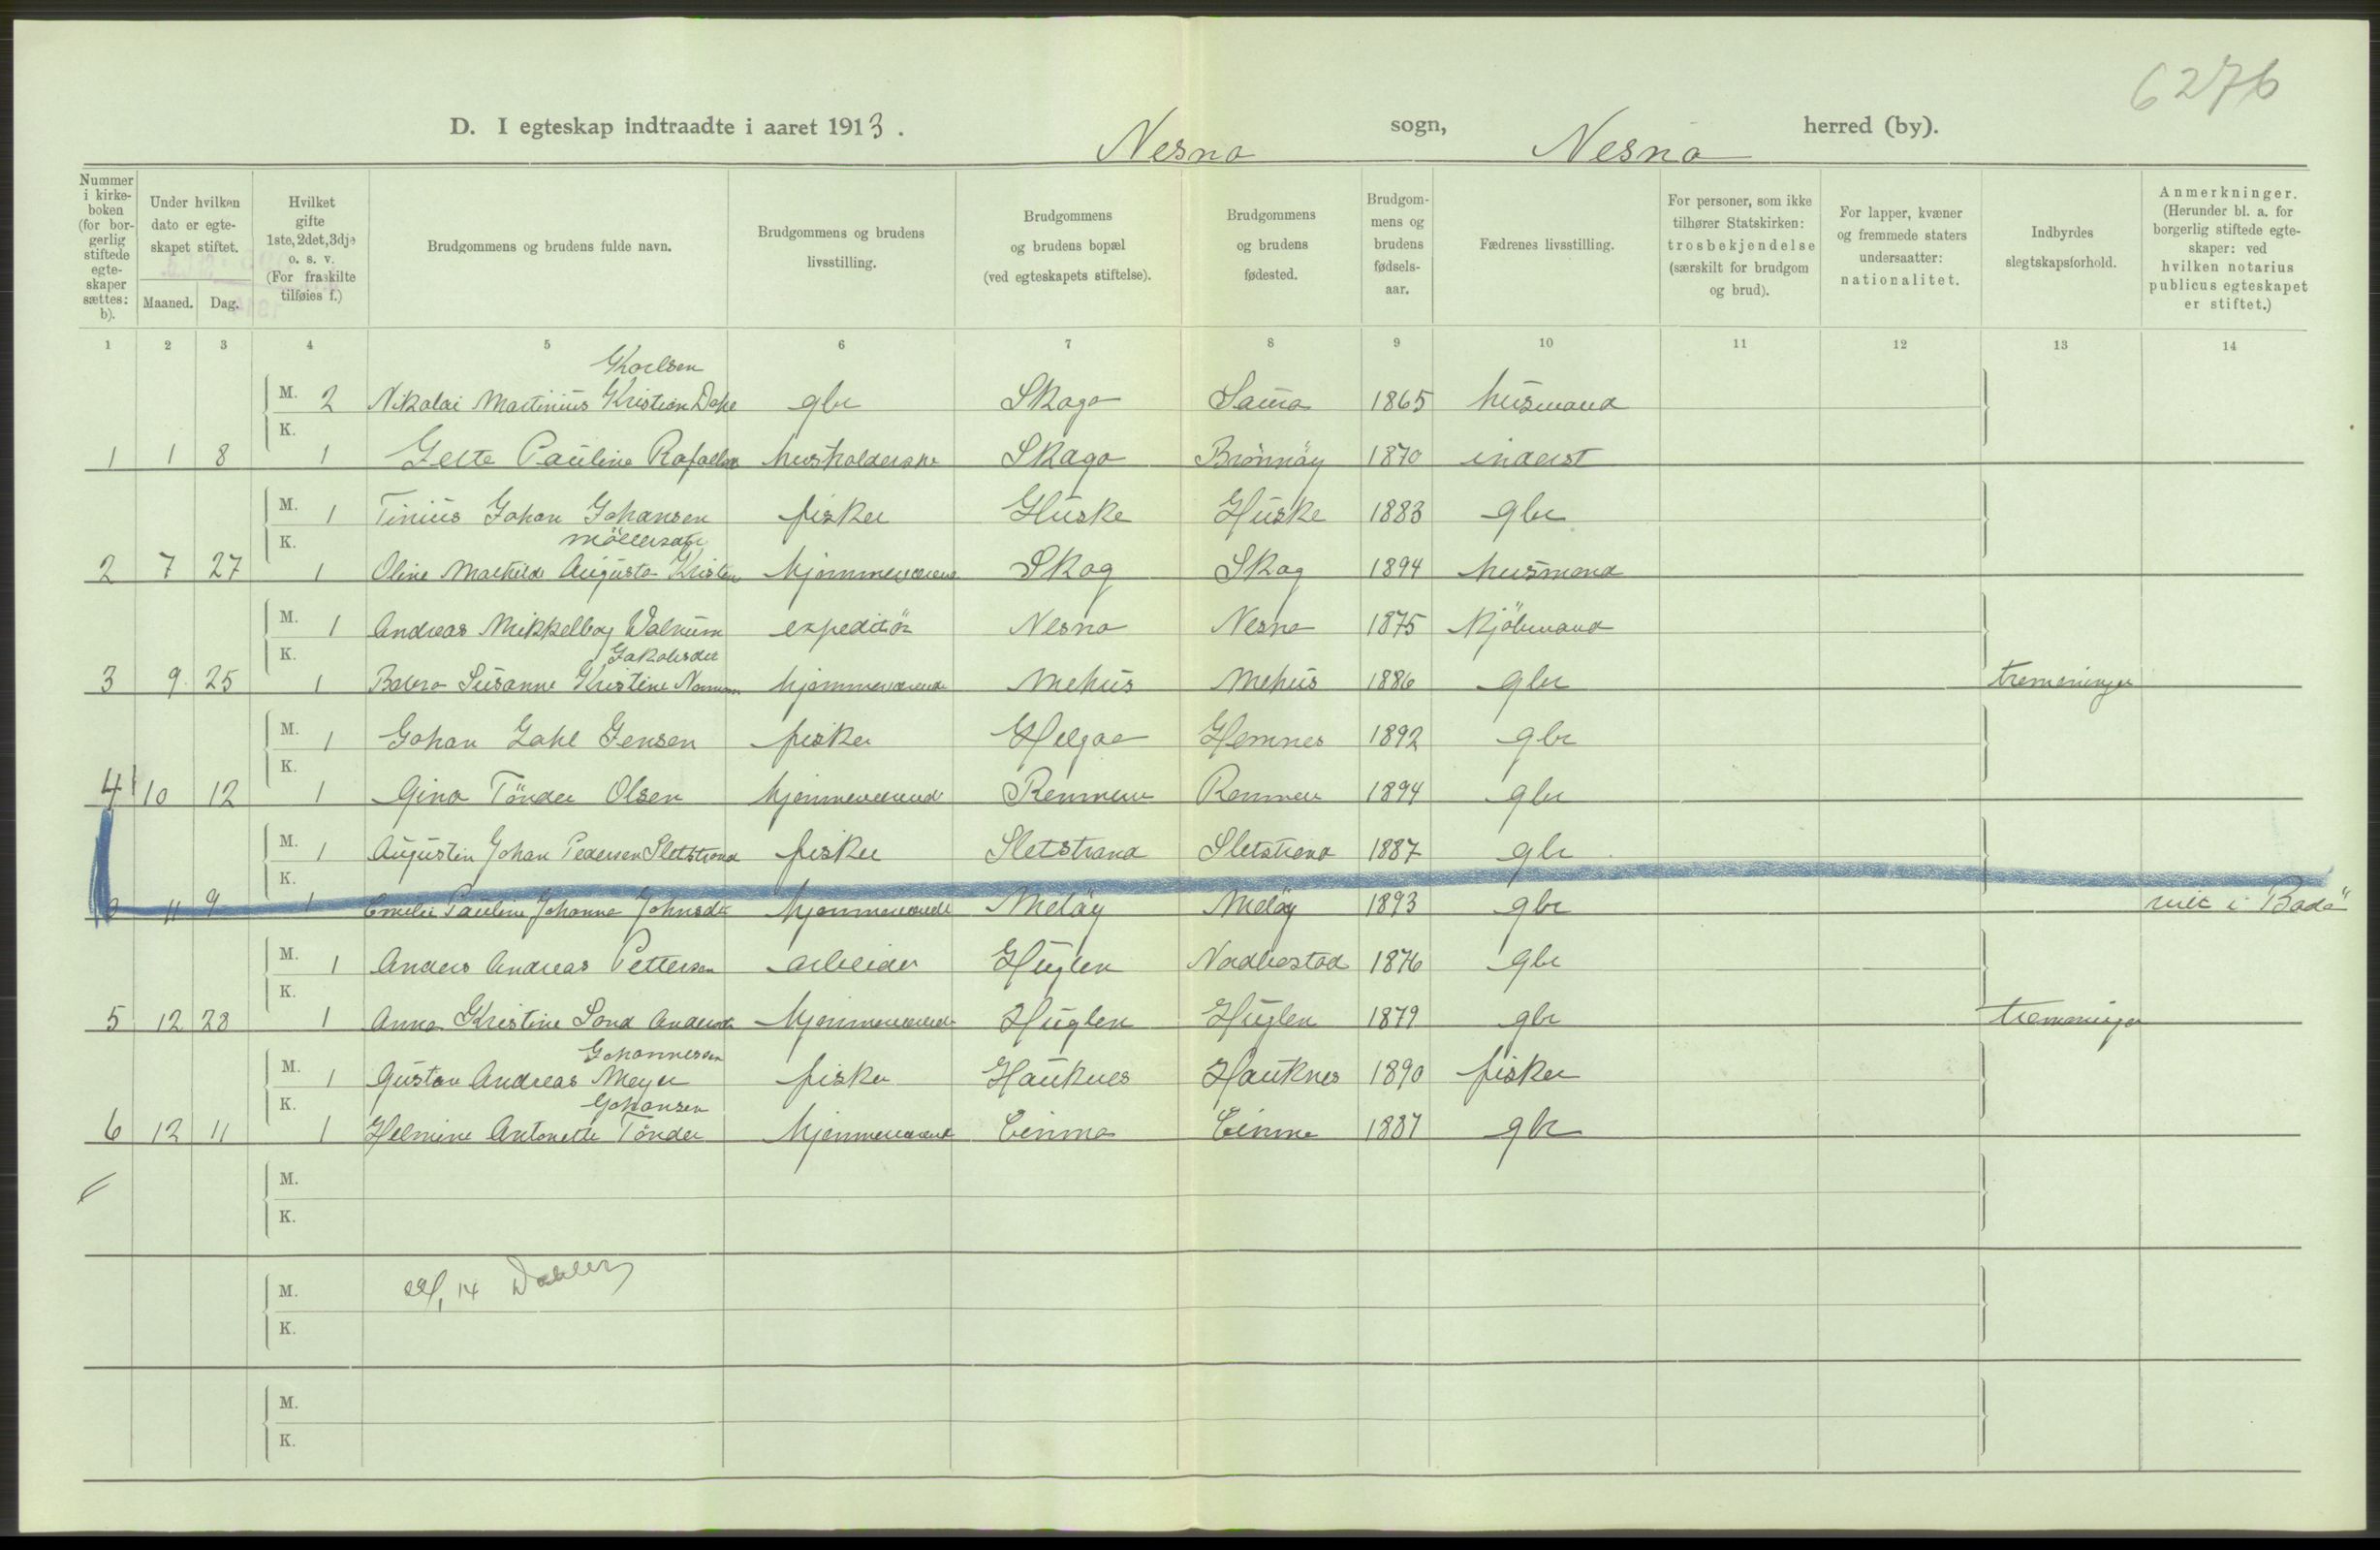 6276
D. I egteskap indtraadte i aaret 1913. Nesna sogn, Nesna herred (by).
Nummer i kirke-boken (for bor-gerlig stiftede egte-skaper sættes: b).
Under hvilken dato er egte-skapet stiftet.
Maaned. Dag.
Hvilket gifte 1ste, 2det, 3dje o. s. v. (For fraskilte tilføies f.)
Brudgommens og brudens fulde navn.
Brudgommens og brudens livsstilling.
Brudgommens og brudens bopæl (ved egteskapets stiftelse).
Brudgommens og brudens fødested.
Brudgom-mens og brudens fødsels-aar.
Fædrenes livsstilling.
For personer, som ikke tilhører Statskirken: trosbekjendelse (særskilt for brudgom og brud).
For lapper, kvæner og fremmede staters undersaatter: nationalitet.
Indbyrdes slegtskapsforhold.
Anmerkninger. (Herunder bl. a. for borgerlig stiftede egte-skaper: ved hvilken notarius publicus egteskapet er stiftet.)
1 2 3 4 5 6 7 8 9 10 11 12 13 14
M. 2 Nikolai Martinius Kristian Dahl gbr Skaga 1865 husmand
K.
1 1 8 1 Pauline Skaga Brönnöy 1870 inderst
M. 1 Tinius Johan Johansen fisker Huske Huske 1883 gbr
K. Möllersdtr
2 7 27 1 Oline Mathilde Augusta Kristen hjemmeværende Skog Skog 1894 husmand
M. 1 Andreas Mikkelborg expeditör Nesna Nesna 1875 Kjöbmand
K. Jakobsdtr
3 9 25 1 Susanne Kristine hjemmeværende Mehus Mehus 1886 gbr tremeninger
M. 1 Johan Zahl Jensen fisker Helgaa Hemnes 1892 gbr
K.
4 10 12 1 Gina Tönder Olsen hjemmeværende Renmen Renmen 1894 gbr
M. 1 Augustin Johan Pedersen Sletstrand fisker Sletstrand Sletstrand 1887 gbr
K.
11 9 1 Emelie Pauline Johanna Johnsdtr hjemmeværende Melöy Melöy 1893 gbr viet i Bodö
M. 1 Anders Andreas Pettersen arbeider Huglen 1876 gbr
K.
5 12 28 1 Anna Kristine hjemmeværende Huglen Huglen 1879 gbr tremeninger
Johannesen
M. 1 Gustav Andreas Meyer fisker Hauknes Hauknes 1890 fisker
K. Johansen
6 12 11 1 Helmine Antonette Tönder hjemmeværende 1887 gbr
M.
K.
M. 14
K.
M.
K.